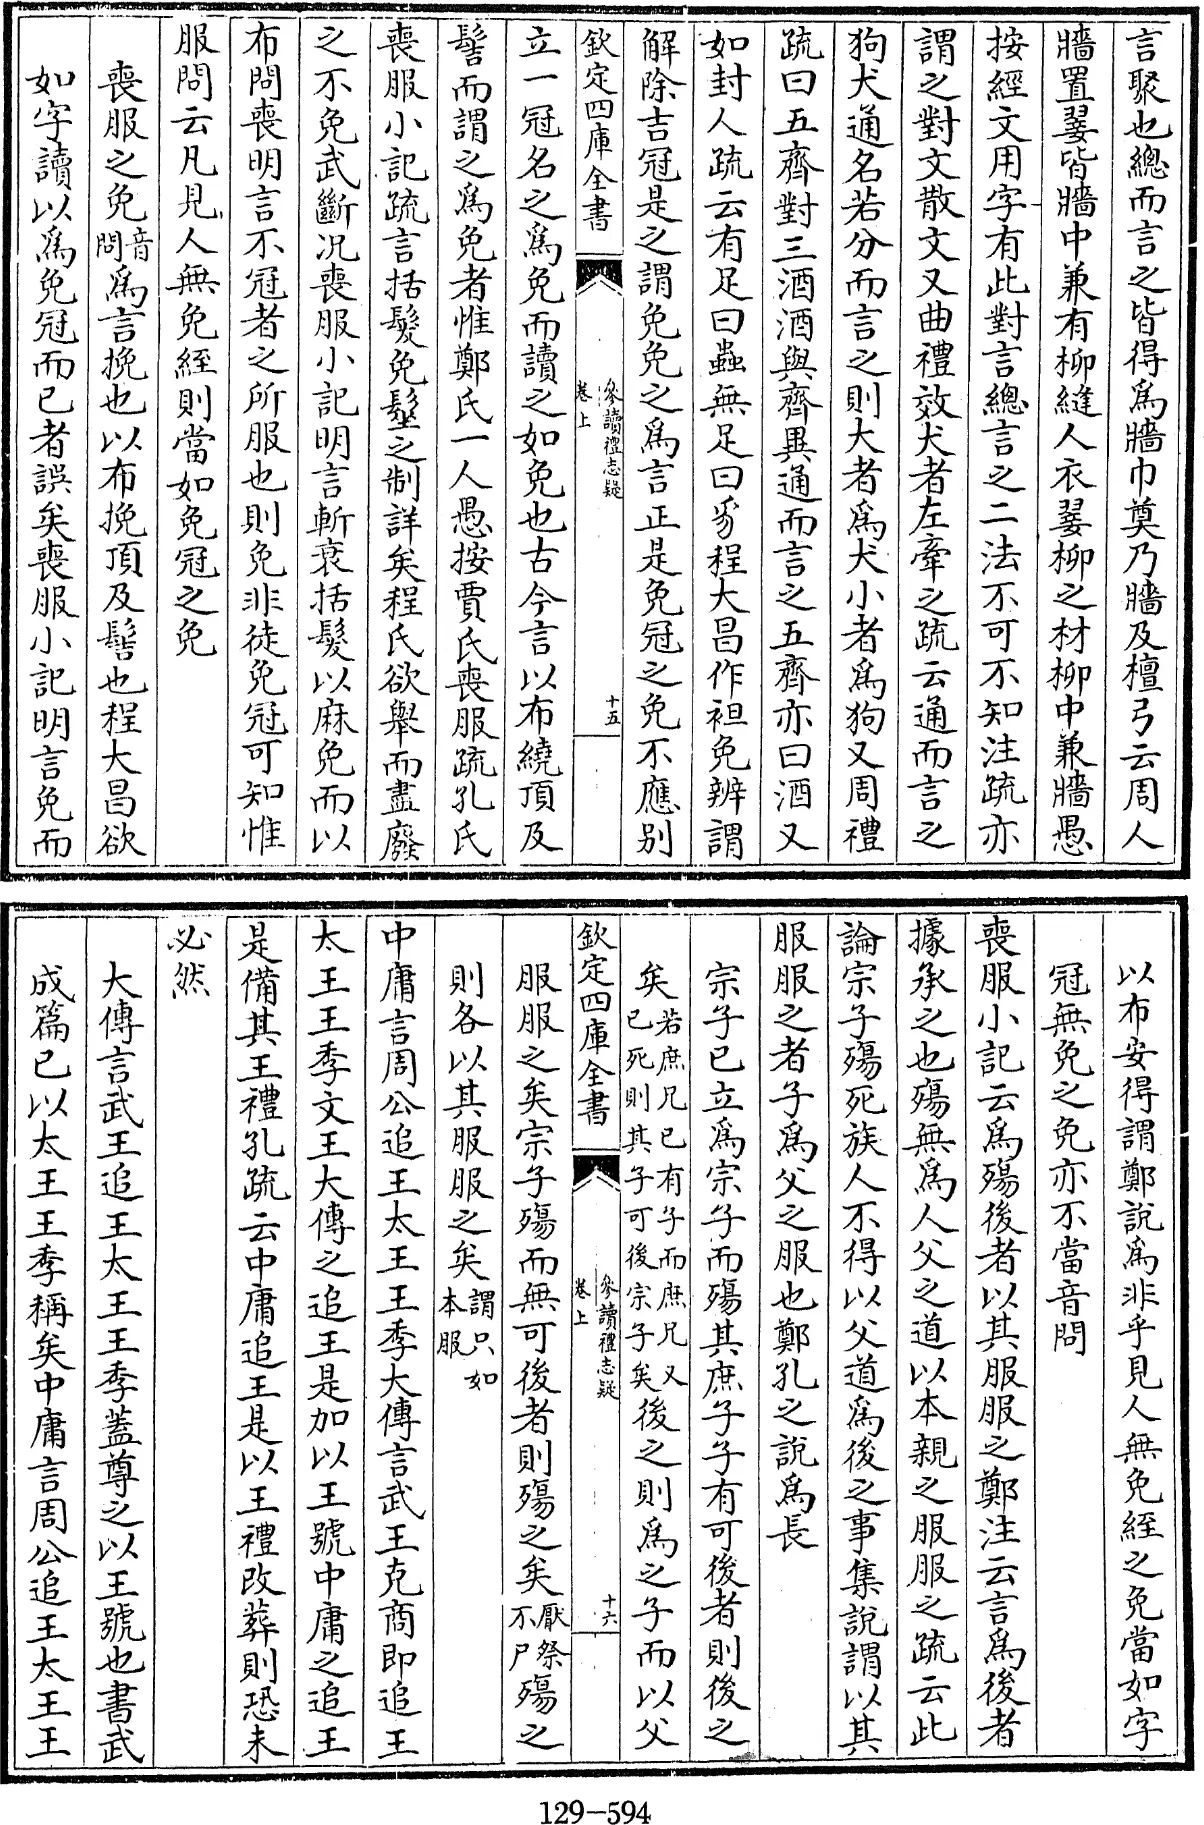 言聚也總而言之皆得爲牆巾奠乃牆及檀弓云周人
牆置翣皆牆中兼有栁縫人衣翣栁之材栁中兼牆愚
按經文用字有此對言總言之二法不可不知注疏亦
謂之對文散文又曲禮效犬者左牽之疏云通而言之
狗犬通名若分而言之則大者爲犬小者爲狗又周禮
疏曰五齊對三酒酒與齊異通而言之五齊亦曰酒又
如封人疏云有足曰蟲無足曰豸程大昌作袒免辨謂
解除吉冠是之謂免免之爲言正是免冠之免不應别
欽定四庫全書
參讀禮志疑
卷上
十五
立一冠名之爲免而讀之如免也古今言以布繞頂及
髻而謂之爲免者惟鄭氏一人愚按賈氏喪服疏孔氏
喪服小記疏言括髮免髽之制詳矣程氏欲舉而盡廢
之不免武斷况喪服小記明言斬衰括髮以麻免而以
布問喪明言不冠者之所服也則免非徒免冠可知惟
服問云凡見人無免絰則當如免冠之免
喪服之免音問爲言挽也以布挽項及髻也程大昌欲
如字讀以爲免冠而已者誤矣喪服小記明言免而
以布安得謂鄭說爲非乎見人無免絰之免當如字
冠無免之免亦不當音問
喪服小記云爲殤後者以其服服之鄭注云言爲後者
據承之也殤無爲人父之道以本親之服服之疏云此
論宗子殤死族人不得以父道爲後之事集說謂以其
服服之者子爲父之服也鄭孔之說爲長
宗子已立爲宗子而殤其庶子子有可後者則後之
矣若庶兄已有子而庶兄又已死則其子可後宗子矣後之則爲之子而以父
欽定四庫全書
參讀禮志疑
卷上
十六
服服之矣宗子殤而無可後者則殤之矣厭祭不尸殤之
則各以其服服之矣謂只如本服
中庸言周公追王太王王季大傳言武王克商即追王
太王王季文王大傳之追王是加以王號中庸之追王
是備其王禮孔疏云中庸追王是以王禮改葬則恐未
必然
大傳言武王追王太王王季蓋尊之以王號也書武
成篇已以太王王季稱矣中庸言周公追王太王王
129-594